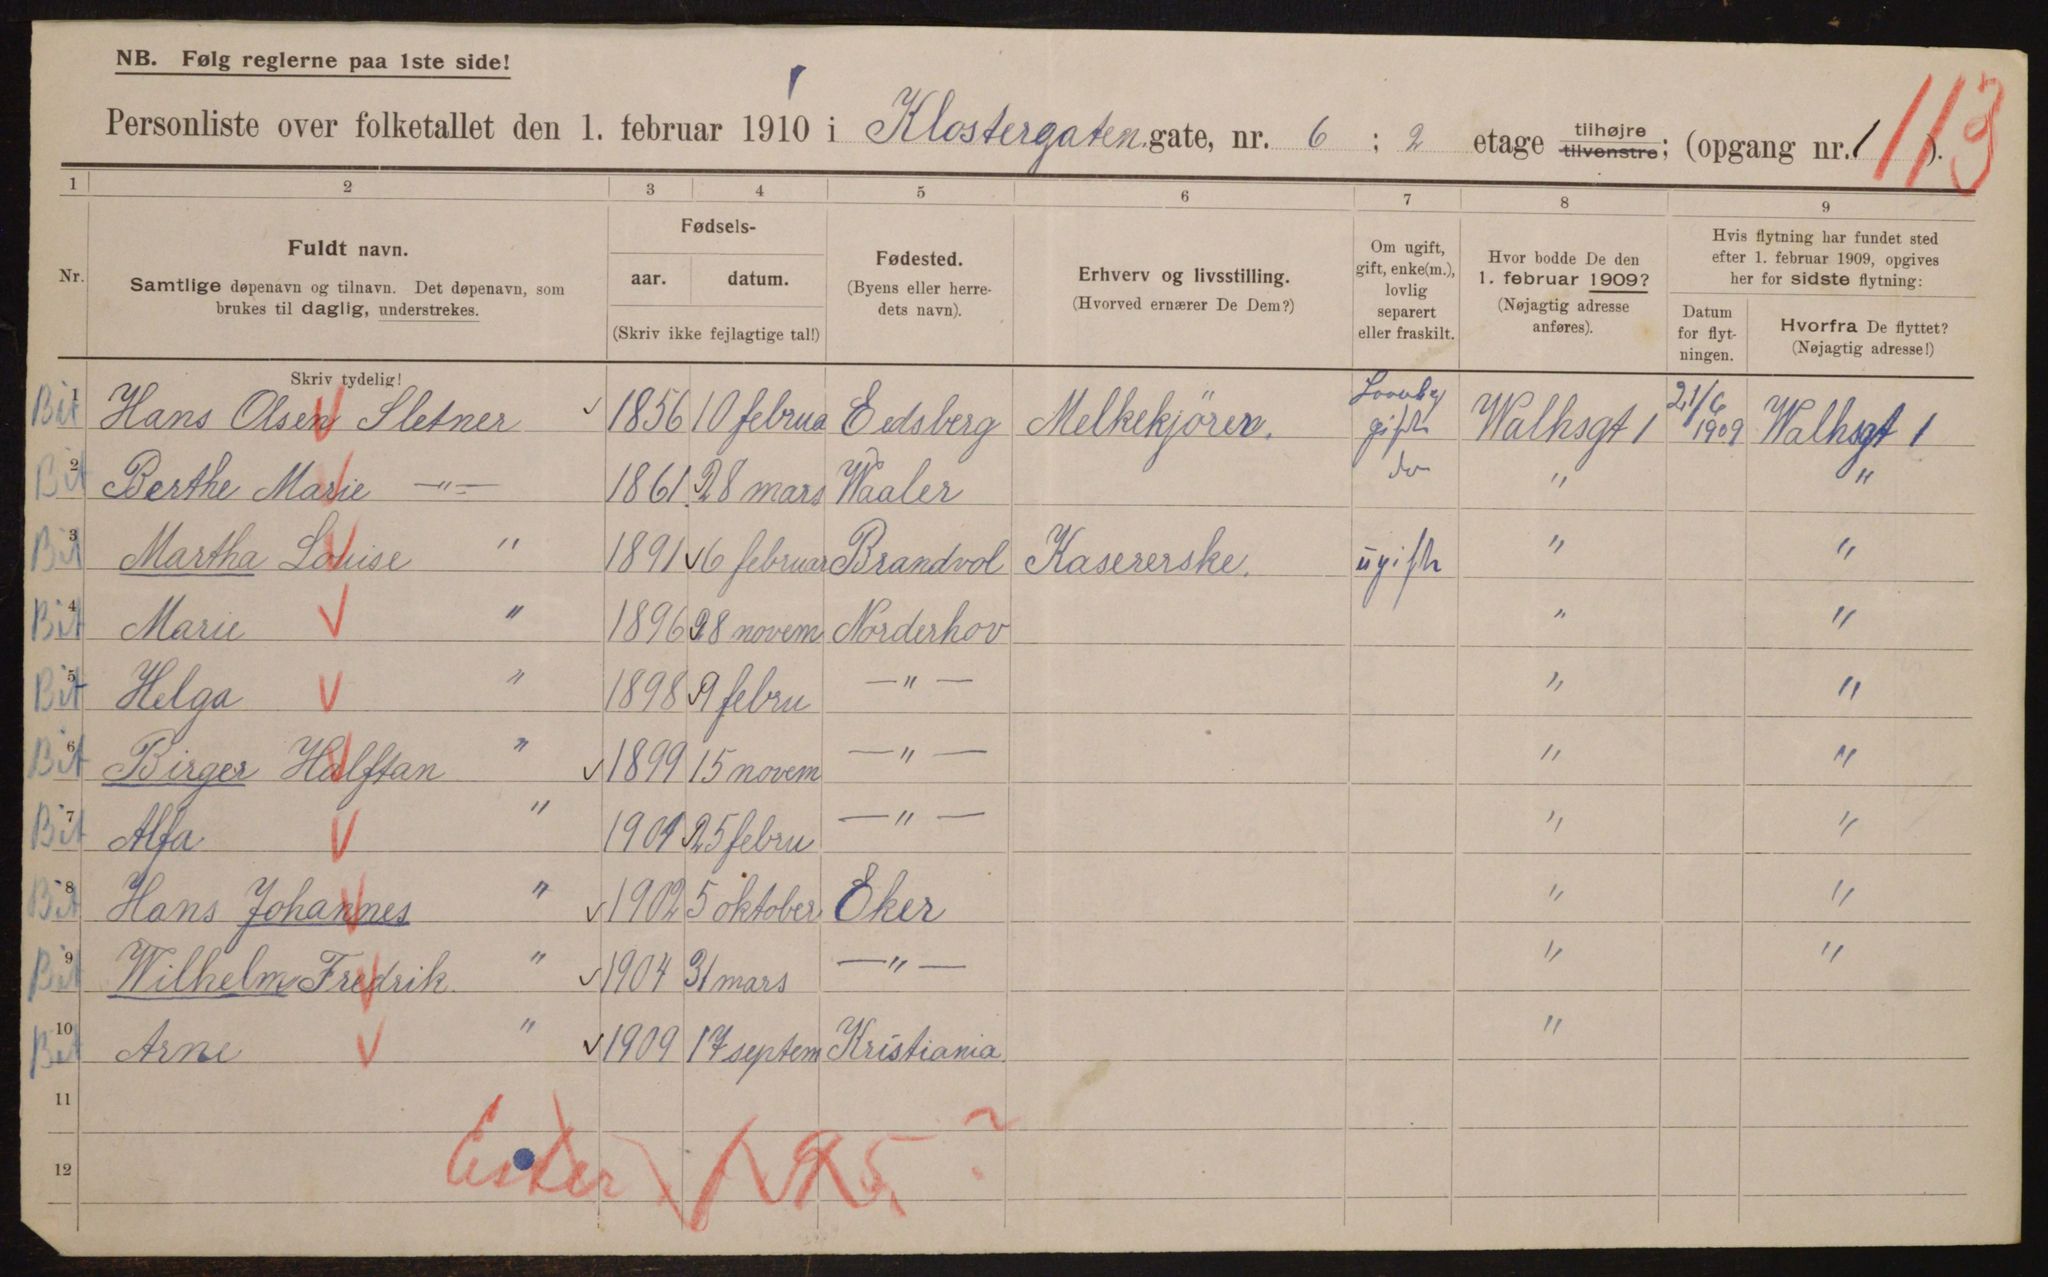 NB. Følg reglerne paa 1ste side!
Personliste over folketallet den 1. februar 1910 i Klostergaten gate, nr. 6 ; 2 etage tilhøjre tilvenstre; (opgang nr. 1 ).
113
1 2 3 4 5 6 7 8 9
Nr.
Fuldt navn.
Samtlige døpenavn og tilnavn. Det døpenavn, som
brukes til daglig, understrekes.
Skriv tydelig!
Fødsels-
aar. datum.
(Skriv ikke fejlagtige tal!)
Fødested.
(Byens eller herre-
dets navn).
Erhverv og livsstilling.
(Hvorved ernærer De Dem?)
Om ugift,
gift, enke(m.),
lovlig
separert
eller fraskilt.
Hvor bodde De den
1. februar 1909?
(Nøjagtig adresse
anføres).
Hvis flytning har fundet sted
efter 1. februar 1909, opgives
her for sidste flytning:
Datum
for flyt-
ningen.
Hvorfra De flyttet?
(Nøjagtig adresse!)
Bit 1 Hans Olsen Sletner 1856 10 februa Eedsberg Melkekjörer. gift Walhsgt 1 21/6 1909 Walhsgt 1
Bit 2 Berthe Marie —"— 1861 28 mars Waaler do " "
Bit 3 Martha Louise " 1891 6 februar Brandvol Kasererske. ugift " "
Bit 4 Marie " 1896 28 novem Norderhov " "
Bit 5 Helga " 1898 9 febru —"— " "
Bit 6 Birger Halftan " 1899 15 novem —"— " "
Bit 7 Alfa " 1901 25 febru —"— " "
Bit 8 Hans Johannes " 1902 5 oktober Eker " "
Bit 9 Wilhelm Fredrik " 1904 31 mars —"— " "
Bit 10 Arne " 1909 17 septem Kristiania "
11
12
Ester